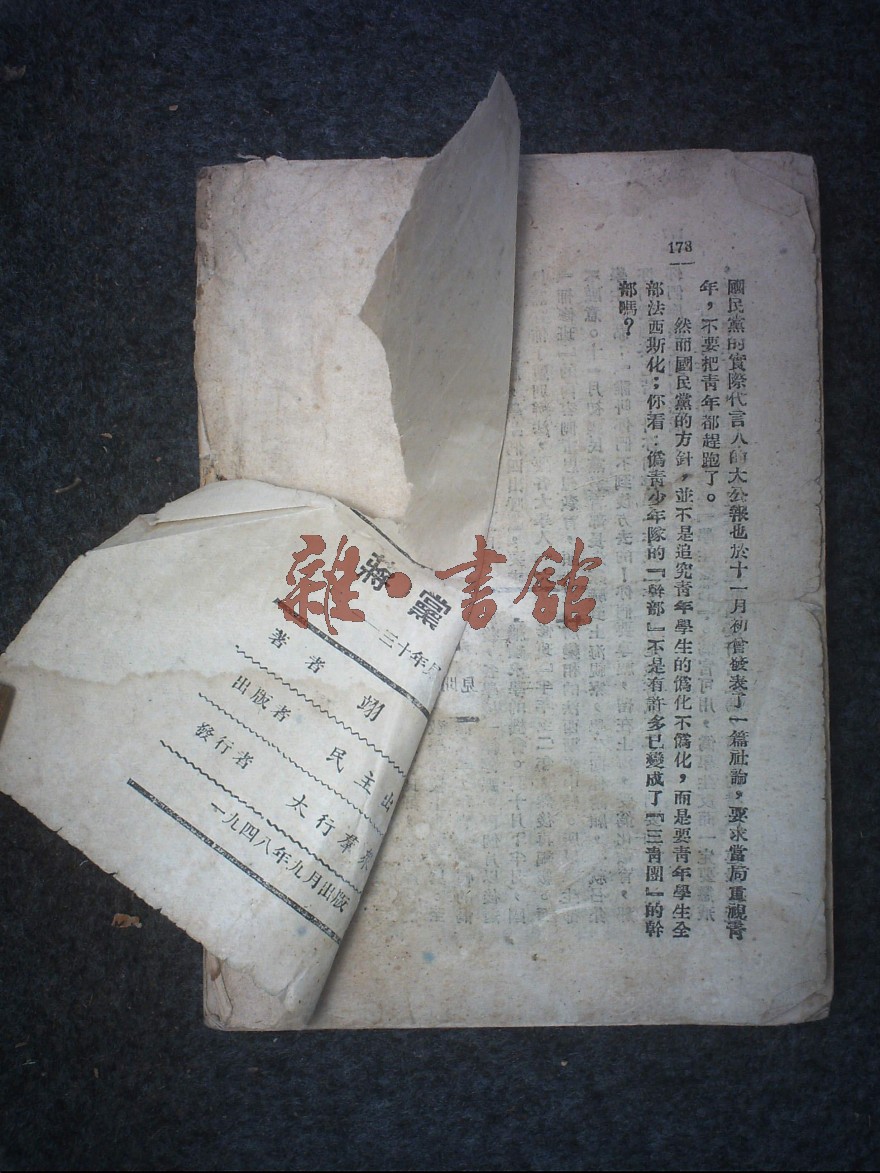 173
國民黨的實際代言人的大公報也於十一月初曾發表了一篇社論，要求當局重視青
年，不要把青年都趕跑了。
然而國民黨的方針，並不是追究青年學生的僞化不僞化，而是要青年學生全
部法西斯化；你看：僞青少年隊的『幹部』不是有許多已變成了『三青團』的幹
部嗎？
蔣黨
—三十年
著者 翊
出版者 民主出
發行者 太行羣
一九四八年九月出版
雜·書館